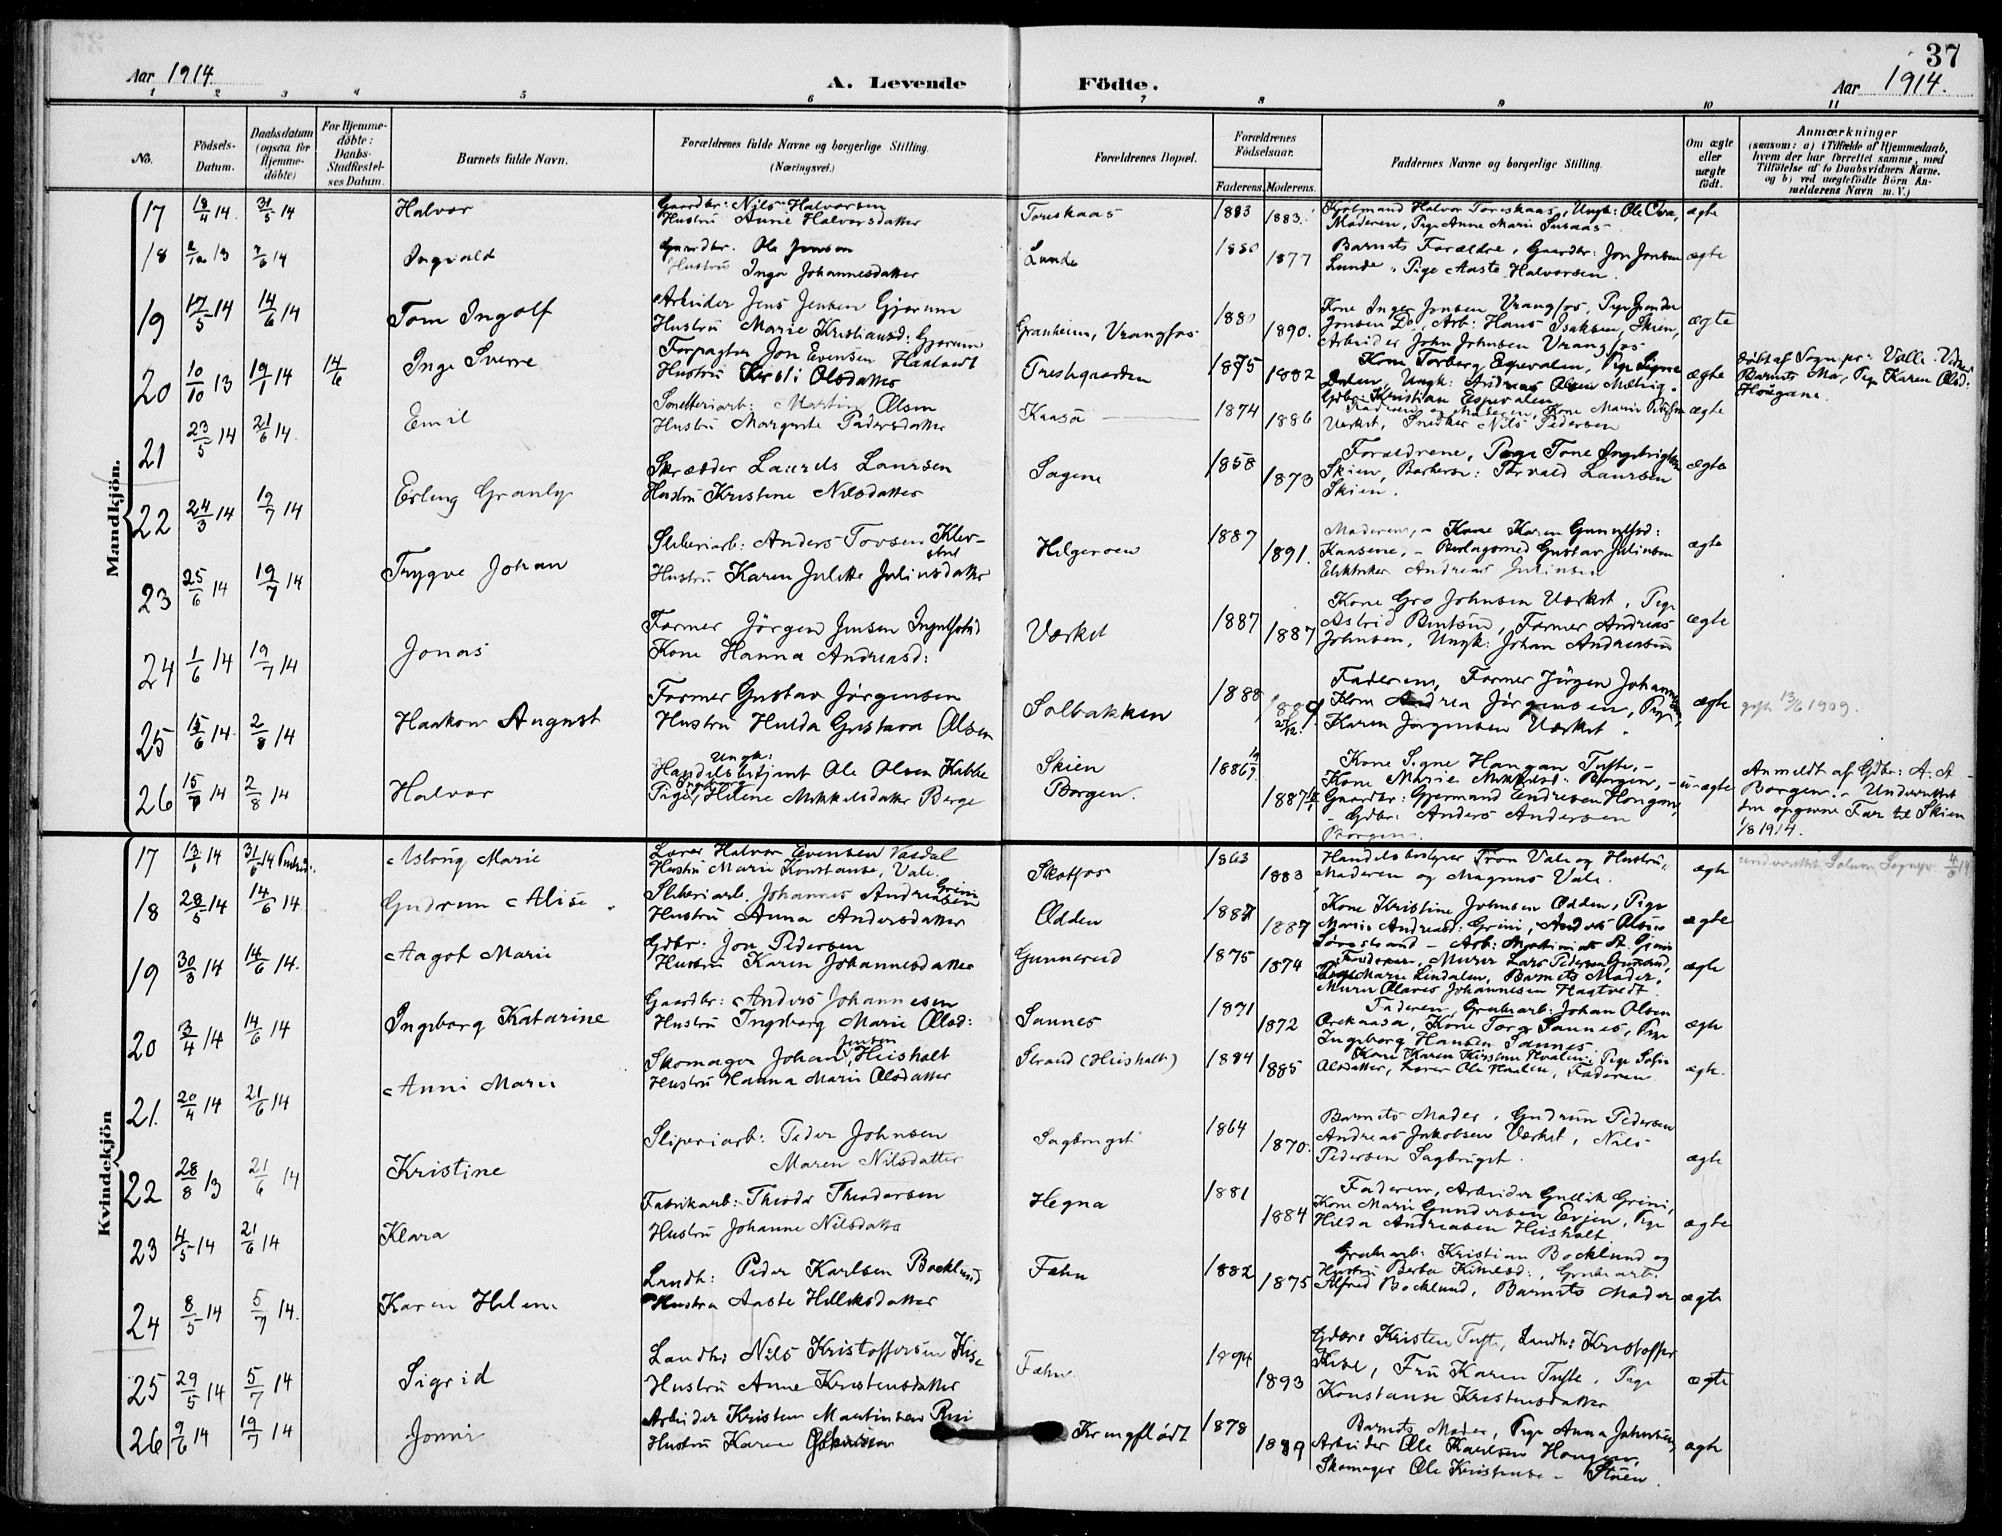 37
Aar 1914.
A. Levende Födte.
Aar 1914.
1 2 3 4 5 6 7 8 9 10 11
No.
Födsels-Datum.
Daabsdatum (ogsaa for Hjemme-döbte)
For Hjemme-döbte: Daabs-Stadfæstel-ses Datum.
Barnets fulde Navn.
Forældrenes fulde Navne og borgerlige Stilling. (Næringsvei.)
Forældrenes Bopæl.
Forældrenes Födselsaar.
Faderens. Moderens.
Faddernes Navne og borgerlige Stilling.
Om ægte eller uægte født.
Anmærkninger
(saasom: a) i Tilfælde af Hjemmedaab, hvem der har forrettet samme, med Tilföielse af to Daabsvidners Navne. og b) ved uægtefödte Börn An-melderens Navn m. V.)
Mandkjön.
17 18/4 14. 31/5 14 Halvor
Gaardbr: Nils Halvorsen
Hustru Anne Halvorsdatter
Toreskaas 1883 1883.
Halvor Toreskaas, Ungk: Ole
Moderen, Pige Anne Marie
ægte
18 2/12 13 7/6 14 Ingvald
Gaardbr. Ole Jonsen
Hustru Inga Johannesdatter
Lunde 1880 1877
Barnets Forældre, Gaardbr: Jon Jonsen
Lunde, Pige Aaste Halvorsen.
ægte
19 17/5 14 14/6 14 Tom Ingolf
Arbeider Jens Jensen Gjerum
Hustru Marie Kristiansd: Gjerum
Granheim, Vrangfos 1880 1890.
Kone Inger Jensen Vrangfos, Pige
Jonsen Do, Arb: Hans Isaksen, Skien,
Arbeider John Johnsen Vrangfos
ægte
20 10/10 13 19/1 14 14/6 Inge Sverre
Forpagter Jon Evensen Haatvedt
Hustru Kirsti Olsdatter
1875 1882
Kone Torberg Espevalen, Pige Signe
Ungk: Andreas Olsen
Gdbr: Kristian Espevalen
ægte
døbt af Sognepr: Valle.
Barnets Mor, Pige Karen Olsd:
Haugane.
21 23/5 14 21/6 14. Emil
Martin Olsen
Hustru Margrete Pedersdatter
Kaasa 1874 1886
Faderen og Moderen, Kone Marie
Værket, Snedker Nils Pedersen
ægte
22 24/3 14 19/7 14 Erling Granly
Skrædder Laurits Laursen
Hustru Kristine Nilsdatter
Sagene 1858 1873
Forældrene, Pige Tone Ingebrigtsen
Skien, Barberer: Torvald Laursen
Skien.
ægte
23 25/6 14 19/7 14 Trygve Johan
Sliberiarb: Anders Tovsen
Hustru Karen Julette Juliusdatter
Helgeroen 1887 1891.
Moderen, – Kone Karen
Kaasene, – Gustav Juliusen
Elektriker Andreas Juliusen
ægte
24 1/6 14 19/7 14 Jonas
Former Jørgen Jensen
Kone Hanna Andreasd:
Værket 1887 1887
Kone Gro Johnsen Værket, Pige
Astrid Former Andreas
Johnsen, Ungk: Johan Andreasen
ægte
25 15/6 14. 2/8 14 Haakon August
Former Gustav Jørgensen
Hustru Hulda Gustava Olsen
Solbakken 1888 1889 27/12.
Faderen, Former Jörgen Johannesen,
Kone Andrea Jørgensen, Pige
Karen Jørgensen Værket.
ægte
gift 13/6 1909.
26 15/7 14 2/8 14 Halvor
Ungk:
Handelsbetjent Ole Olsen Kabbe
Pige, Helene Mikkelsdatter Berge
Skien
Borgen. 1886 1887
Kone Signe Haugan Tufte, –
Kone Marie Mikkelsd: Borgen, –
Gaardbr: Gjermund Endresen Haugane,
– Gdbr: Anders Andersen
Borgen.
u-ægte
Anmeldt af Gdbr: A. A.
Borgen. – Underrettet
den opgivne Far til Skien
1/8 1914.
Kvindekjön
17 31/5 14 Aslaug Marie
Lærer Halvor Evensen Vasdal
Hustru Marie Konstanse, Vale.
Skotfos 1863 1883
Handelsbestyrer Tron Vale og Hustru,
Moderen og Magnus Vale.
ægte
underrettet Solum Sognepr. 4/6 14
18 28/5 14 14/6 14. Gudrun Alise
Sliberiarb. Johannes Andreasen Grini
Hustru Anna Andersdatter
Odden 1887 1887
Kone Kristine Johnsen Odden, Pige
Marie Andreasd: Grini, Anders Olsen
– Arb:
ægte
19 30/3 14 14/6 14. Aagot Marie
Gdbr: Jon Pedersen
Hustru Karen Johannesdatter
Gunnerud 1875 1874
Faderen, Murer Lars Pedersen Gunnerud,
Pige Marie Lindalen, Barnets Moder,
Murer Olaves Johannesen Hagtvedt.
ægte
20 3/4 14 14/6 14 Ingeborg Katarine
Gaardbr: Anders Johannesen
Hustru Ingeborg Marie Olsd:
Sannes 1871 1872
Faderen, Grubearb: Johan Olsen
Kone Torø Sannes, Pige
Ingeborg Hansen Sannes
ægte
21. 20/4 14 21/6 14 Anni Marie
Skomager Johan Jensen, Heishalt
Hustru Hanna Marie Olsdatter
Strand (Heishalt) 1884 1885
Kone Karen Kirstine Hvalen, Pige Sofie
Olsdatter, Lærer Ole Hvalen, Faderen.
ægte.
22 28/8 13 21/6 14 Kristine
Sliperiarb: Peder Johnsen
Maren Nilsdatter
Sagbruget 1864 1870.
Barnets Moder, Gudrun Pedersen
Andreas Jakobsen Værket, Nils
Pedersen Sagbruget.
ægte
23 4/5 14 21/6 14 Klara
Fabrikarb: Theodor Theodorsen
Hustru Johanne Nilsdatter
Hegna 1881 1884
Faderen, Arbeider Gullik Grini,
Kone Marie Gundersen Evjen, Pige
Hilda Andreasen Heishalt
ægte
24 8/5 14 5/7 14. Karen Helene
Landh: Peder Karlsen Bocklund
Hustru Aaste Helleksdatter
Fæhn 1882 1875
Grubearb: Kristian Bocklund og
Hustru Berta Grubearb:
Alfred Bocklund, Barnets Moder
ægte
25 29/5 14 5/7 14 Sigrid
Landh: Nils Kristoffersen Kise
Hustru Anne Kristensdatter
Fæhn. 1894 1893
Gdbr: Kristen Tufte, Landh: Kristoffer
Kise, Fru Karen Tufte, Pige
Konstanse Kristensdatter
ægte
26 9/6 14 19/7 14
Arbeider Kristen Martinsen
Hustru Karen
Kringflødt 1878 1889
Barnets Moder, Pige Anna Johnsen,
Arbeider Ole Karlsen Haugen,
Skomager Ole Kristense – Støen.
ægte